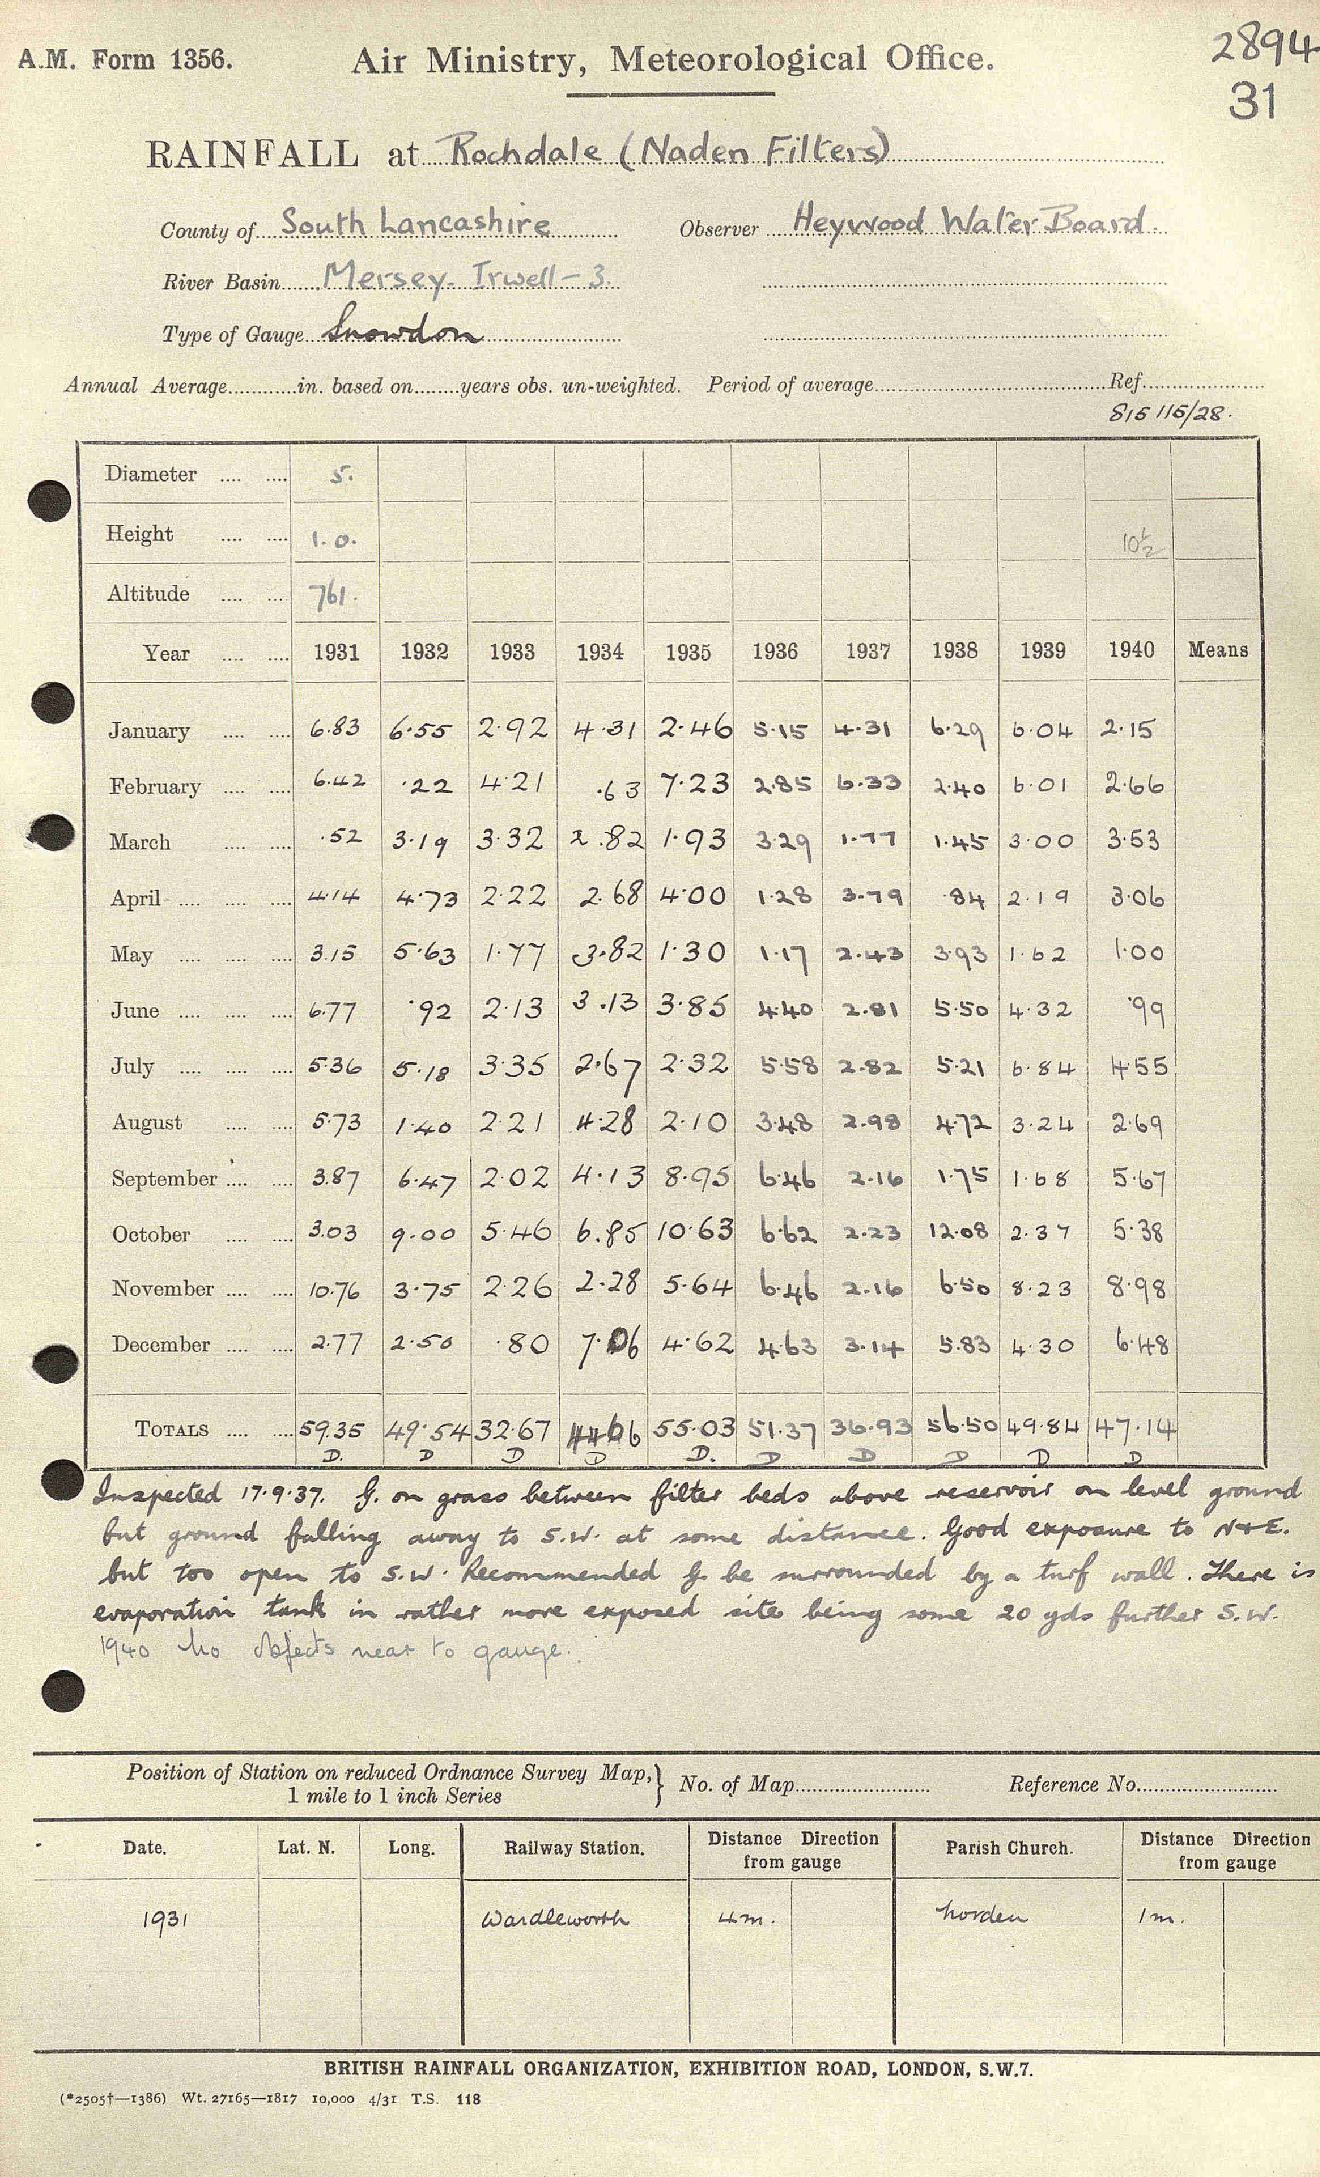 A.M. Form 1356. Air Ministry, Meteorological Office. 2894
31
RAINFALL at Rochdale (Naden Filters)
County of South Lancashire Observer Heywood Water Board.
River Basin Mersey-Irwell-3.
Type of Gauge Snowdon
Annual Average............in. based on........years obs. un-weighted. Period of average..............Ref..............
815 115/28.
Diameter .... .... 5.
Height .... .... 1. 0. 10½
Altitude .... .... 761.
Year .... .... 1931 1932 1933 1934 1935 1936 1937 1938 1939 1940 Means
January .... .... 6.83 6.55 2.92 4.31 2.46 5.15 4.31 6.29 6.04 2.15
February .... .... 6.42 .22 4.21 .63 7.23 2.85 6.33 2.40 6.01 2.66
March .... .... .52 3.19 3.32 2.82 1.93 3.29 1.77 1.45 3.00 3.53
April .... .... .... 4.14 4.73 2.22 2.68 4.00 1.28 3.79 .84 2.19 3.06
May .... .... .... 3.15 5.63 1.77 3.82 1.30 1.17 2.43 3.93 1.62 1.00
June .... .... .... 6.77 .92 2.13 3.13 3.85 4.40 2.81 5.50 4.32 .99
July .... .... .... 5.36 5.18 3.35 2.67 2.32 5.58 2.82 5.21 6.84 4.55
August .... .... 5.73 1.40 2.21 4.28 2.10 3.48 2.98 4.72 3.24 2.69
September .... .... 3.87 6.47 2.02 4.13 8.95 6.46 2.16 1.75 1.68 5.67
October .... .... 3.03 9.00 5.46 6.85 10.63 6.62 2.23 12.08 2.37 5.38
November .... .... 10.76 3.75 2.26 2.28 5.64 6.46 2.16 6.50 8.23 8.98
December .... .... 2.77 2.50 .80 7.06 4.62 4.63 3.14 5.83 4.30 6.48
TOTALS .... .... 59.35 49.54 32.67 55.03 51.37 36.93 56.50 49.84 47.14
D. D D D D. D D D D D
Inspected 17.9.37. G. on grass between filter beds above reservoir on level ground
but ground falling away to S.W. at some distance. Good exposure to N+E.
but too open to S.W. Recommended G. be surrounded by a turf wall. There is
evaporation tank in rather more exposed site being some 20 yds further S.W.
1940 No objects near to gauge.
Position of Station on reduced Ordnance Survey Map, 1 mile to 1 inch Series } No. of Map.............. Reference No..............
Date. Lat. N. Long. Railway Station. Distance Direction from gauge Parish Church. Distance Direction from gauge
1931 Wardleworth 4m. Norden 1m.
BRITISH RAINFALL ORGANIZATION, EXHIBITION ROAD, LONDON, S.W.7.
(*2505†—1386) Wt. 27165—1817 10,000 4/31 T.S. 118